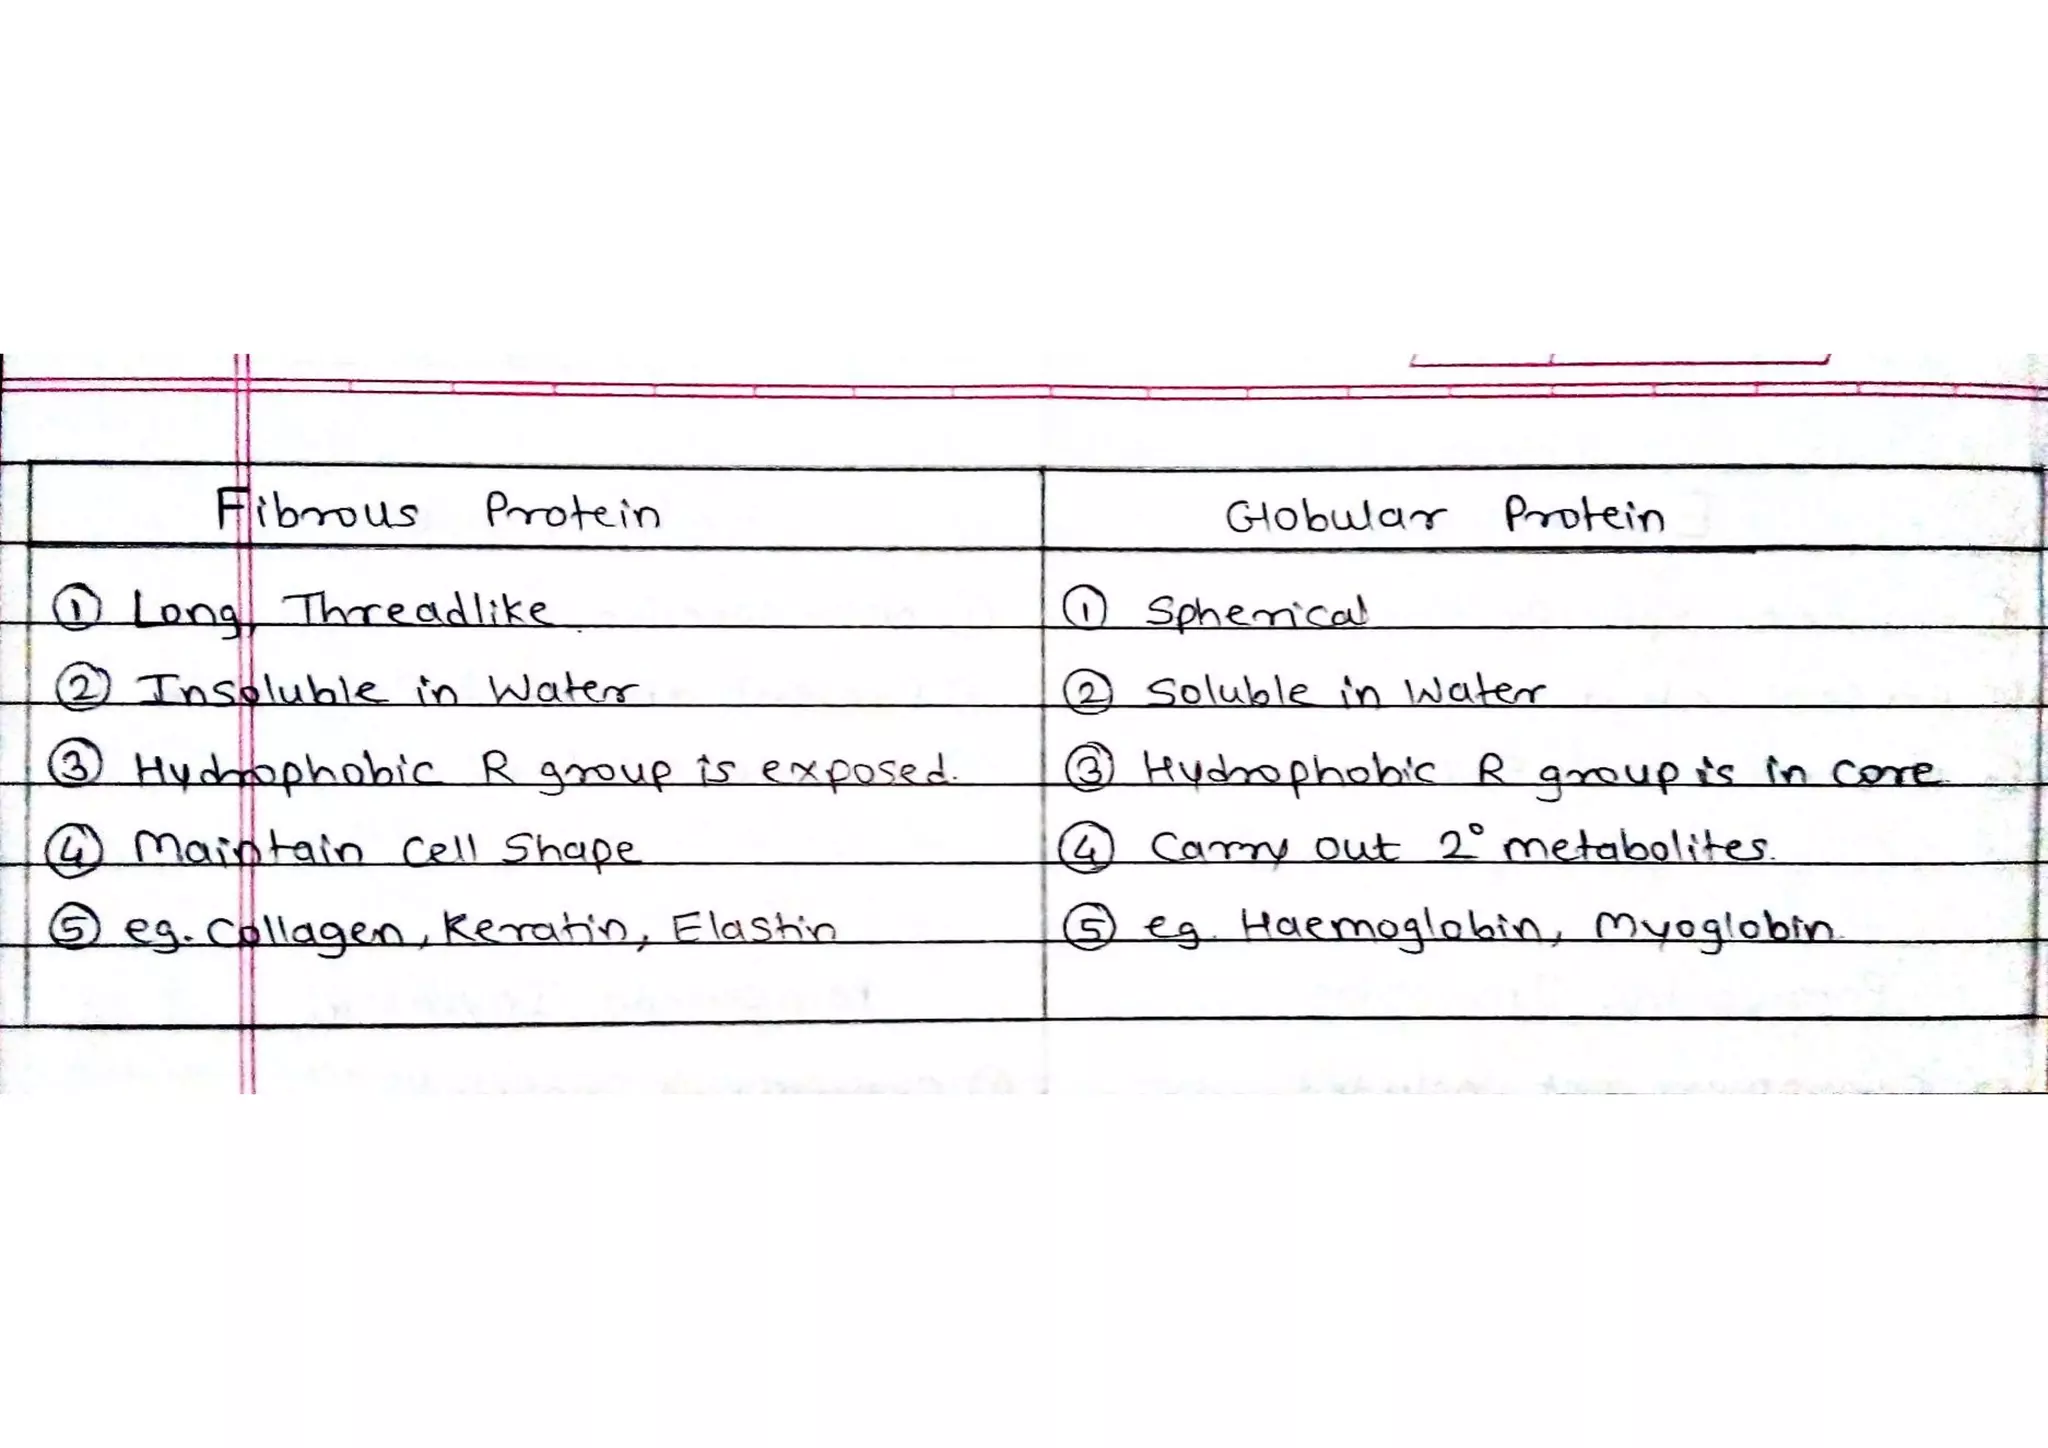 Fibrous Protein
Globular Protein
① Long, Threadlike
① Spherical
② Insoluble in Water
② Soluble in Water
③ Hydrophobic R group is exposed.
③ Hydrophobic R group is in core.
④ Maintain Cell Shape
④ Carry out 2° metabolites.
⑤ eg. Collagen, Keratin, Elastin
⑤ eg. Haemoglobin, Myoglobin.